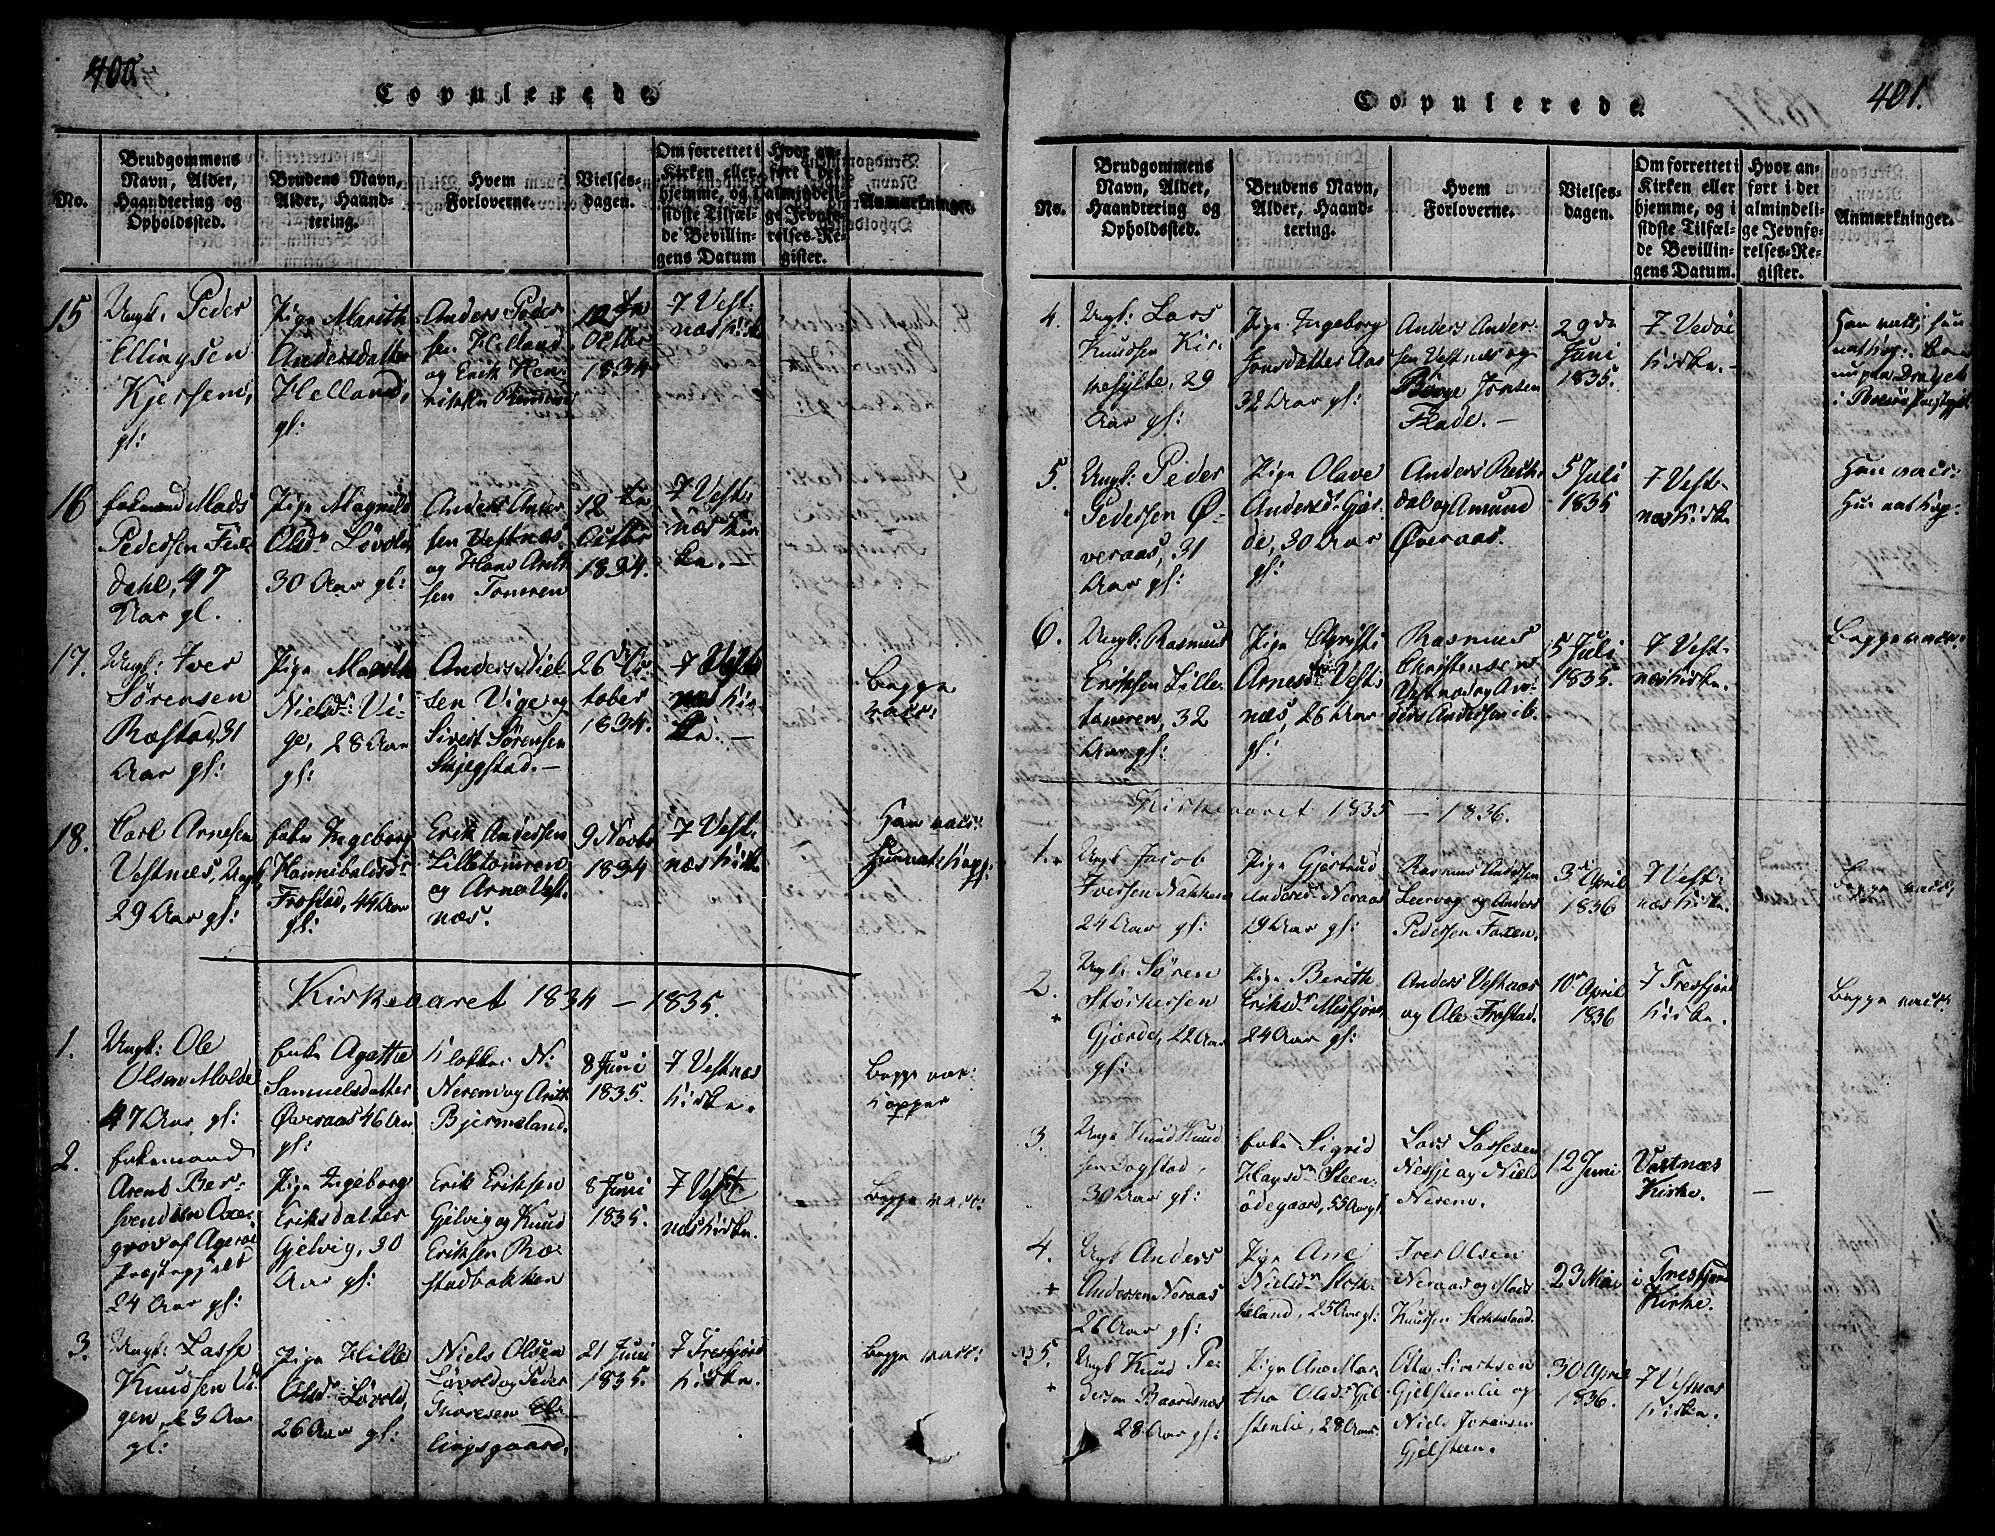 400.
Copulerede
No.
Brudgommens
Navn, Alder,
Haandtering og
Opholdssted.
Brudens Navn,
Alder, Haand-
tering.
Hvem
Forloverne.
Vielses-
dagen.
Om forrettet i
Kirken eller
hjemme, og i
sidste Tilfæl-
de Bevillin-
gens Datum
Hvor an-
ført i det
almindeli-
ge Jevnfø-
relses-Re-
gister.
Anmærkninger.
15
Ungk. Peder
Ellingsen
gl:
Pige Marith
Andersdatter
Helland,
gl:
Anders Peder
sen Helland
og Erik Hen-
riksen
12te
Octbr
1834
7 Vest-
næs Kirke
16
Enkemand Mads
Pedersen
dahl, 47
Aar gl.
Pige Magnild
Olsdr Løvold
30 Aar gl:
Anders Ander
sen Vestnæs
og Hans
sen Tomren
12te
Octbr
1834.
7 Vest-
næs Kir
ke. –
17.
Ungk: Iver
Sørensen
Ræstad, 31
Aar gl:
Pige Marith
Nielsdr Vi-
ge, 28 Aar
gl:
Anders Niel
sen Vige og
Sivert Sørensen
Skjegstad. –
26 Oc
tober
1834.
7 Vest
næs Kir-
ke. –
Begge
vacc:
18.
Carl Arnesen
Vestnæs, Ungk,
29 Aar gl:
Enke Ingeborg
Hannibalsdr
Frostad, 44 Aar
gl:
Erik Andersen
Lilletomren
og Arne Vest-
næs.
9 Novbr
1834
7 Vest-
næs Kirke
Han vacc:
Hun nat: Kopp:
Kirkeaaret 1834 – 1835.
1.
Ungk: Ole
Olsen Molde
47 Aar gl:
Enke Agathe
Samuelsdatter
Øveraas 46 Aar
gl:
Klokker N:
Nerem og Arith
Bjermeland.
8 Juni
1835.
7 Vestnæs
Kirke.
Begge nat:
Kopper
2.
Enkemand
Arent Ber-
grov af Agerøe
Præstegjeld
24 Aar gl:
Pige Ingeborg
Eriksdatter
Gjelvig, 30
Aar gl:
Erik Eriksen
Gjelvig og Knud
Eriksen Ræ-
stadbakken
8 Juni
1835.
7 Vest
næs Kirke.
Begge vacc:
3.
Ungk: Lasse
Knudsen Va
gen, 23 Aar
gl:
Pige Hille
Olsdr Løvold,
26 Aar gl:
Niels Olsen
Løvold og Peder
Thoresen El-
lingsgaard.
21 Juni
1835.
7 Tresfjord
Kirke.
Begge vacc:
401.
Copulerede.
No.
Brudgommens
Navn, Alder,
Haandtering og
Opholdssted.
Brudens Navn,
Alder, Haand-
tering.
Hvem
Forloverne.
Vielses-
dagen.
Om forrettet i
Kirken eller
hjemme, og i
sidste Tilfæl-
de Bevillin-
gens Datum.
Hvor an-
ført i det
almindeli-
ge Jevnfø-
relses-Re-
gister.
Anmærkninger.
4.
Ungk: Lars
Knudsen Kir-
kesylte, 29
Aar gl:
Pige Ingeborg
Jonsdatter Aas
32 Aar gl:
Anders Ander-
sen Vestnæs og
Børge Jonsen
Flade. –
29de
Juni
1835.
7 Vedøe
Kirke. –
Han vacc: Hun
nat Kop:
5.
Ungk: Peder
Pedersen Ø-
veraas, 31
Aar gl:
Pige Olave
Andersdr Gjær-
de, 30 Aar
gl:
Anders
dal og Amund
Øveraas.
5 Juli
1835
7 Vest-
næs Kirke.
Han vacc:
Hun nat Kop-
6.
Ungk: Rasmus
Eriksen Lille-
tomren, 32
Aar gl:
Pige Christi
Arnesdr Vest-
næs, 26 Aar
gl:
Rasmus
Christensen
Vestnæs og An-
ders Andersen ib.
5 Juli
1835.
7 Vest-
næs Kirke.
Begge vacc:
Kirkeaaret 1835 – 1836.
1.
Ungk Jacob
Iversen Nakken
24 Aar gl:
Pige Gjertrud
Andersdr Neraas
19 Aar gl:
Rasmus Andersen
Leervog og Anders
Pedersen Foxen.
3die April
1836
7 Vest-
næs Kirke.
Begge vacc:
2.
+
Ungk: Søren
Størkersen
Gjærde, 22 Aar
gl:
Pige Berith
Eriksdr Misfjord,
24 Aar gl:
Anders Vestnæs
og Ole Frostad.
10de April
1836
7 Tresfjord
Kirke.
Begge vacc:
3.
Ungk Knud Knud
sen Dogstad,
30 Aar gl:
Enke Sigrid
Hansdr Steen-
ødegaard, 53 Aar gl
Lars Lassesen
Nesje og Niels
Nerem.
12 Juni
Vestnæs
Kirke.
–
4.
+
Ungk Anders
Andersen Neraas
26 Aar gl:
Pige Ane
Nielsdr Stok-
keland, 25 Aar gl:
Iver Olsen
Neraas og Mads
Knudsen Stokkeland.
23 Mai
i Tresfjord
Kirke.
5.
+
Ungk Knud Pe-
dersen Baardsnæs
28 Aar gl:
Pige Ane Mar-
tha Olsdr Gjel-
stenlie, 28 Aar.
Ole Sivertsen
Gjelstenlie og
Niels Joransen
Gjelsteen.
30 April
1836.
7 Vestnæs
Kirke.